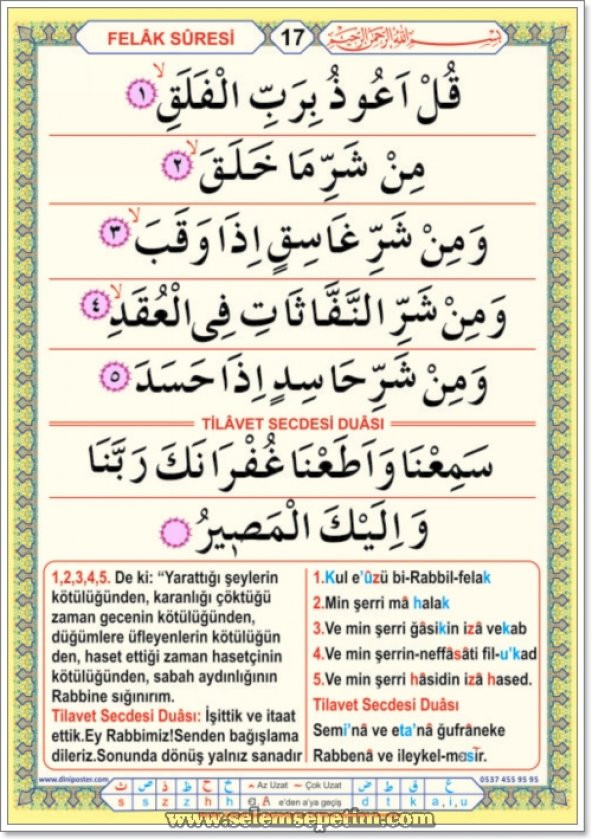 FELÂK SÛRESİ
17
بِسْمِ اللّٰهِ الرَّحْمٰنِ الرَّحِيمِ
قُلْ اَعُوذُ بِرَبِّ الْفَلَقِۙ ١
مِنْ شَرِّ مَا خَلَقَۙ ٢
وَمِنْ شَرِّ غَاسِقٍ اِذَا وَقَبَۙ ٣
وَمِنْ شَرِّ النَّفَّاثَاتِ فِى الْعُقَدِۙ ٤
وَمِنْ شَرِّ حَاسِدٍ اِذَا حَسَدَ ٥
TİLÂVET SECDESİ DUÂSI
سَمِعْنَا وَاَطَعْنَا غُفْرَانَكَ رَبَّنَا
وَاِلَيْكَ الْمَصٖيرُ
1,2,3,4,5. De ki: “Yarattığı şeylerin
kötülüğünden, karanlığı çöktüğü
zaman gecenin kötülüğünden,
düğümlere üfleyenlerin kötülüğün
den, haset ettiği zaman hasetçinin
kötülüğünden, sabah aydınlığının
Rabbine sığınırım.
Tilavet Secdesi Duâsı: İşittik ve itaat
ettik.Ey Rabbimiz!Senden bağışlama
dileriz.Sonunda dönüş yalnız sanadır
1.Kul e’ûzü bi-Rabbil-felak
2.Min şerri mâ halak
3.Ve min şerri ğâsikin izâ vekab
4.Ve min şerrin-neffâsâti fil-u’kad
5.Ve min şerri hâsidin izâ hased.
Tilavet Secdesi Duâsı
Semi’nâ ve eta’nâ ğufrâneke
Rabbenâ ve ileykel-masîr.
www.diniposter.com
ث ص ذ ظ ح خ
Az Uzat ~ Çok Uzat
ق ط ض ع
0537 455 95 95
s s z z h h
e'den a'ya geçiş
d t k a,i,u
www.selemsepetim.com